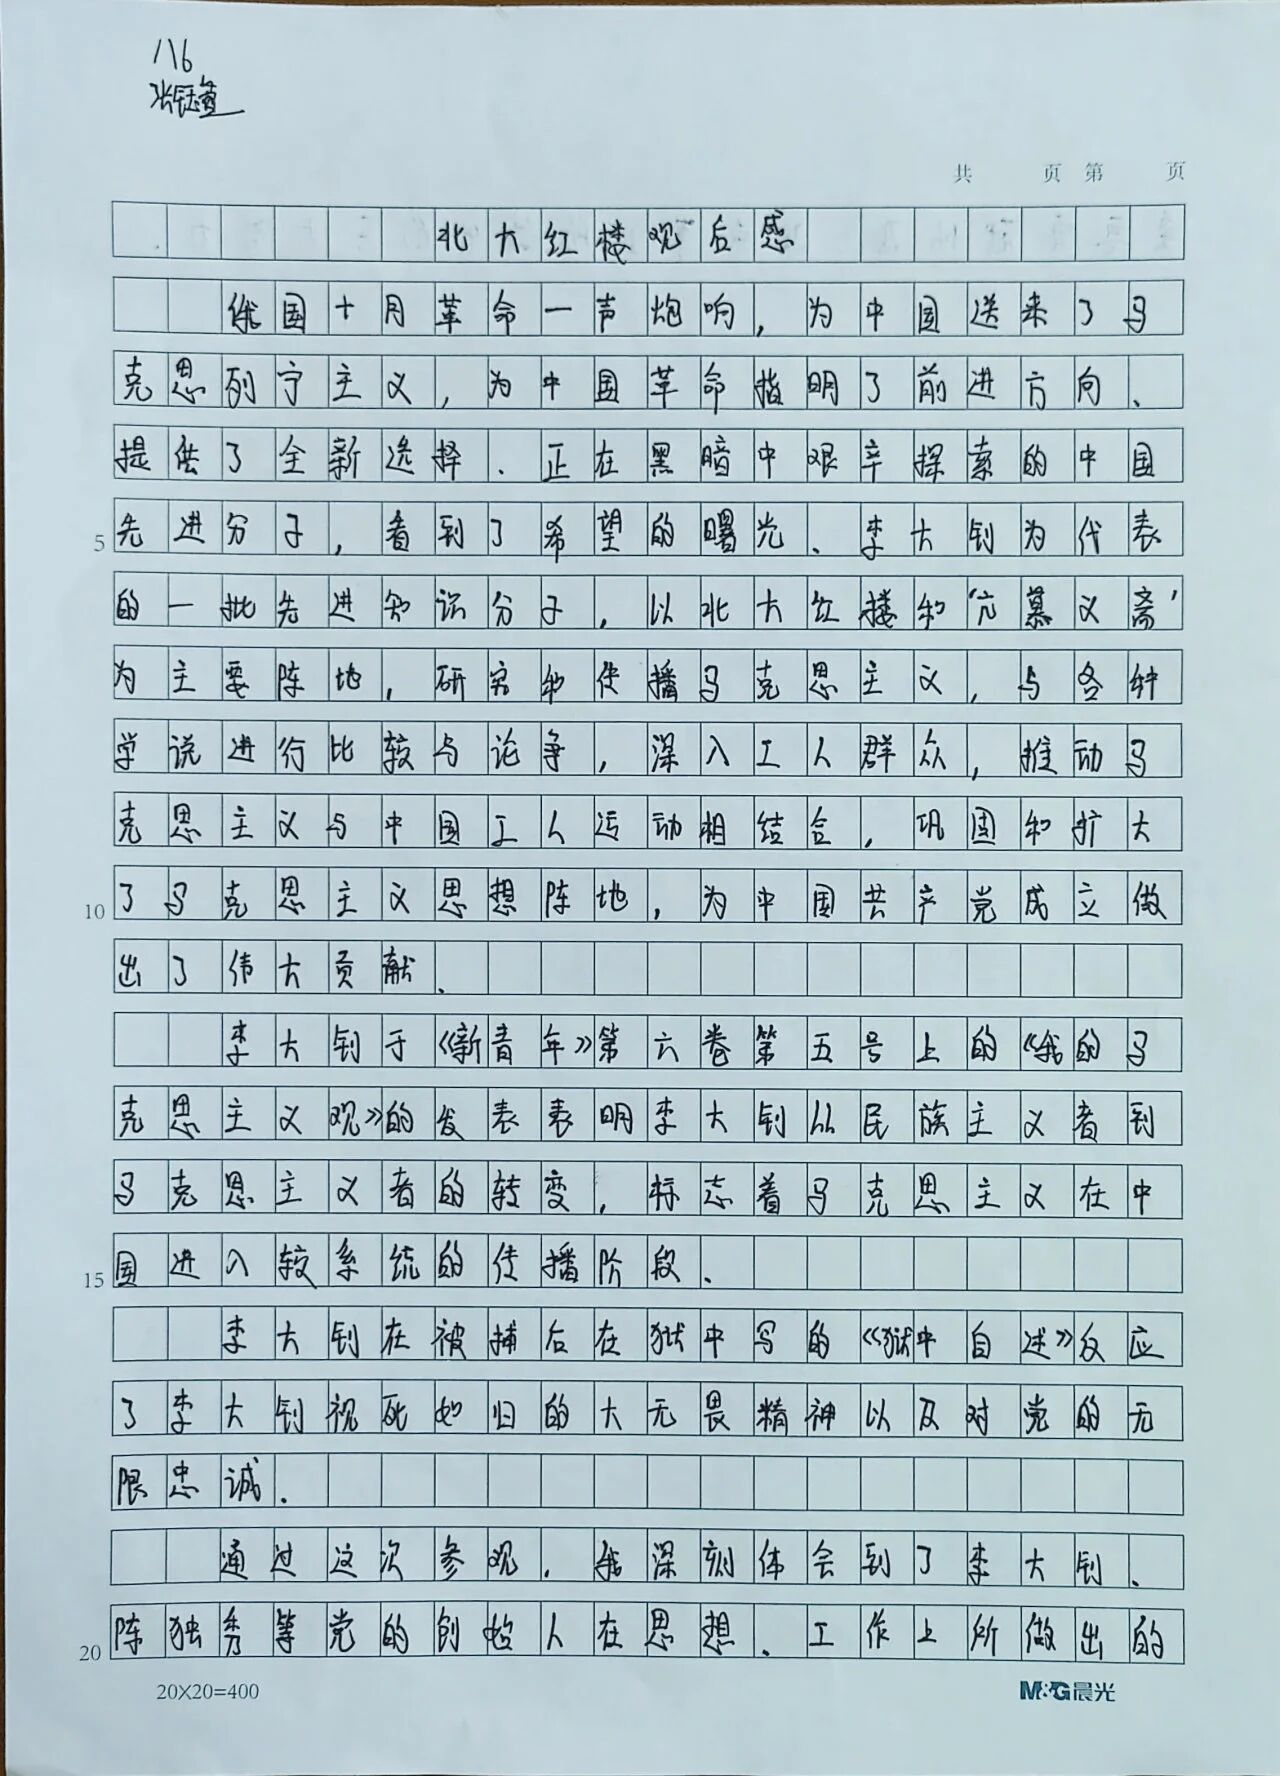 116
共 页 第 页
北大红楼观后感
俄国十月革命一声炮响,为中国送来了马
克思列宁主义,为中国革命指明了前进方向、
提供了全新选择.正在黑暗中艰辛探索的中国
5 先进分子,看到了希望的曙光、李大钊为代表
的一批先进知识分子,以北大红楼和“亢慕义斋”
为主要阵地,研究和传播马克思主义,与各种
学说进行比较与论争,深入工人群众,推动马
克思主义与中国工人运动相结合,巩固和扩大
10 了马克思主义思想阵地,为中国共产党成立做
出了伟大贡献.
李大钊于《新青年》第六卷第五号上的《我的马
克思主义观》的发表表明李大钊从民族主义者到
马克思主义者的转变,标志着马克思主义在中
15 国进入较系统的传播阶段、
李大钊在被捕后在狱中写的《狱中自述》反应
了李大钊视死如归的大无畏精神以及对党的无
限忠诚.
通过这次参观,我深刻体会到了李大钊、
20 陈独秀等党的创始人在思想、工作上所做出的
20X20=400 M&G晨光